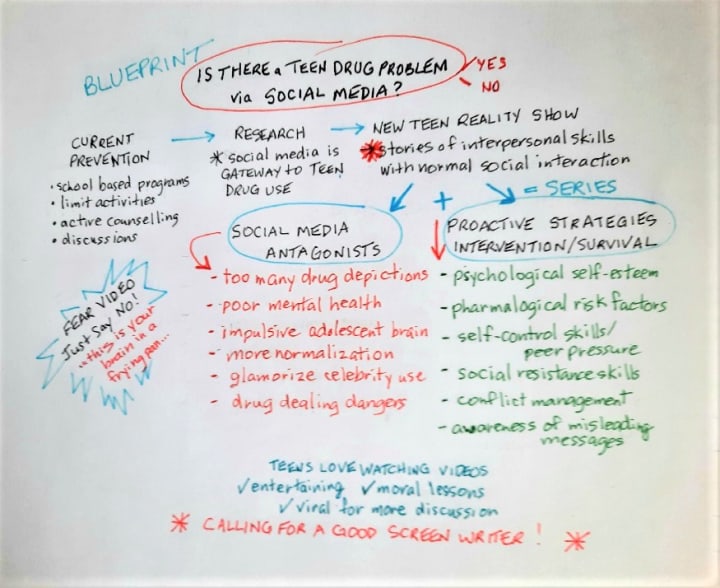 BLUEPRINT
IS THERE a TEEN DRUG PROBLEM
via SOCIAL MEDIA?
YES
NO
CURRENT
PREVENTION
• school based programs
• limit activities
• active counselling
• discussions
RESEARCH
* social media is
GATEWAY TO TEEN
DRUG USE
NEW TEEN REALITY SHOW
* stories of interpersonal skills
with normal social interaction
+
= SERIES
FEAR VIDEO
Just Say NO!
"this is your
brain in a
frying pan...
SOCIAL MEDIA
ANTAGONISTS
- too many drug depictions
- poor mental health
- impulsive adolescent brain
- more normalization
- glamorize celebrity use
- drug dealing dangers
PROACTIVE STRATEGIES
INTERVENTION/SURVIVAL
- psychological self-esteem
- pharmalogical risk factors
- self-control skills/
peer pressure
- social resistance skills
- conflict management
- awareness of misleading
messages
TEENS LOVE WATCHING VIDEOS
✓entertaining ✓moral lessons
✓viral for more discussion
* CALLING FOR A GOOD SCREEN WRITER! *